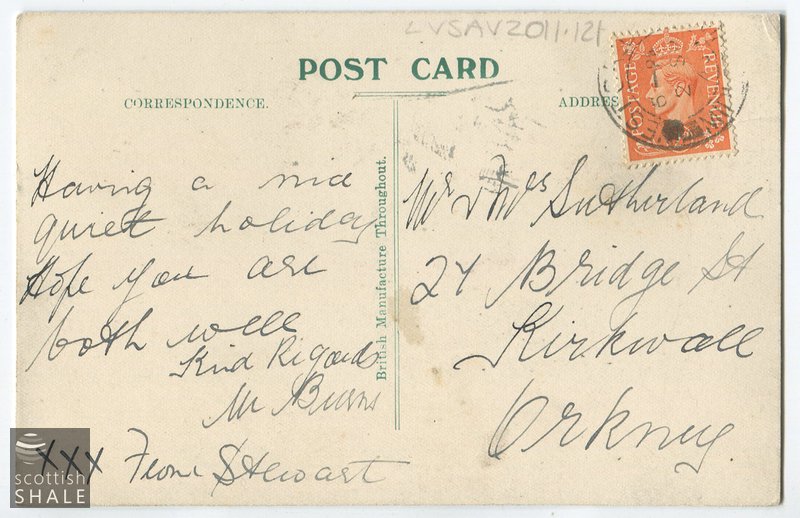 LVSAV2011.121
POST CARD
CORRESPONDENCE.
ADDRES
POSTAGE REVENUE
Having a nice
quiet holiday
Hope you are
both well
Kind Regards
Mr Burns
XXX From Stewart
British Manufacture Throughout.
Mr & Mrs Sutherland
24 Bridge St
Kirkwall
Orkney
scottish
SHALE